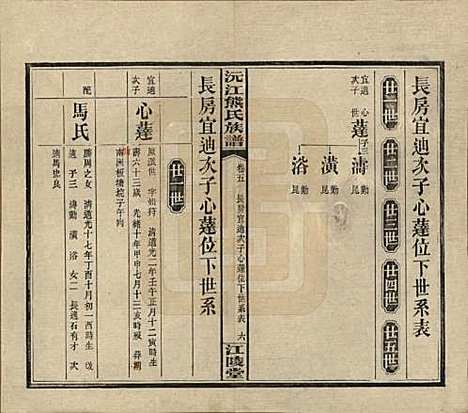 長房宜迪次子心蓬位下世系表
廿一世 廿二世 廿三世 廿四世 廿五世
宜迪次子
心蓬 子三
世
濤 勳崑
潢 勳崑
浴 勳崑
沅江熊氏族譜
卷五 長房宜迪次子心蓬位下世系表 六
江陵堂
長房宜迪次子心蓬位下世系
廿一世
宜迪次子
心蓬
清道光二年壬午正月十二寅時生
壽六十三歲光緒十年甲申七月十三亥時歿 葬湖
南洲板塘垸子午向
配
馬氏
勝周之女 清道光十七年丁酉十月初一酉時生
適 子三 濤勳 潢 浴 女二 長適石有才 次
適馬忠良